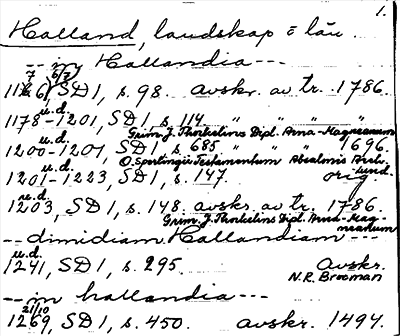 1.
Halland, landskap o län.
-- in Hallandia ---
7 6/7
1166, SD 1, s. 98. avskr. av tr. 1786.
u.d.
1178-1201, SD 1, s. 114 " " "
Grim. J. Thorkelins Dipl. Arna-Magnæanum
u.d.
1200-1201, SD 1, s. 685 " " 1696.
O. Sperlingii Testamentum Absalonis Arch.
1201-1223, SD 1, s. 147. orig.
u.d.
1203, SD 1, s. 148. avskr. av tr. 1786.
Grim. J. Thorkelins Dipl. Arna-Mag-
næanum
-- dimidiam Hallandiam ---
u.d.
1241, SD 1, s. 295. avskr.
N.R. Brocman
-- in hallandia ---
21/10
1269, SD 1, s. 450. avskr. 1494.